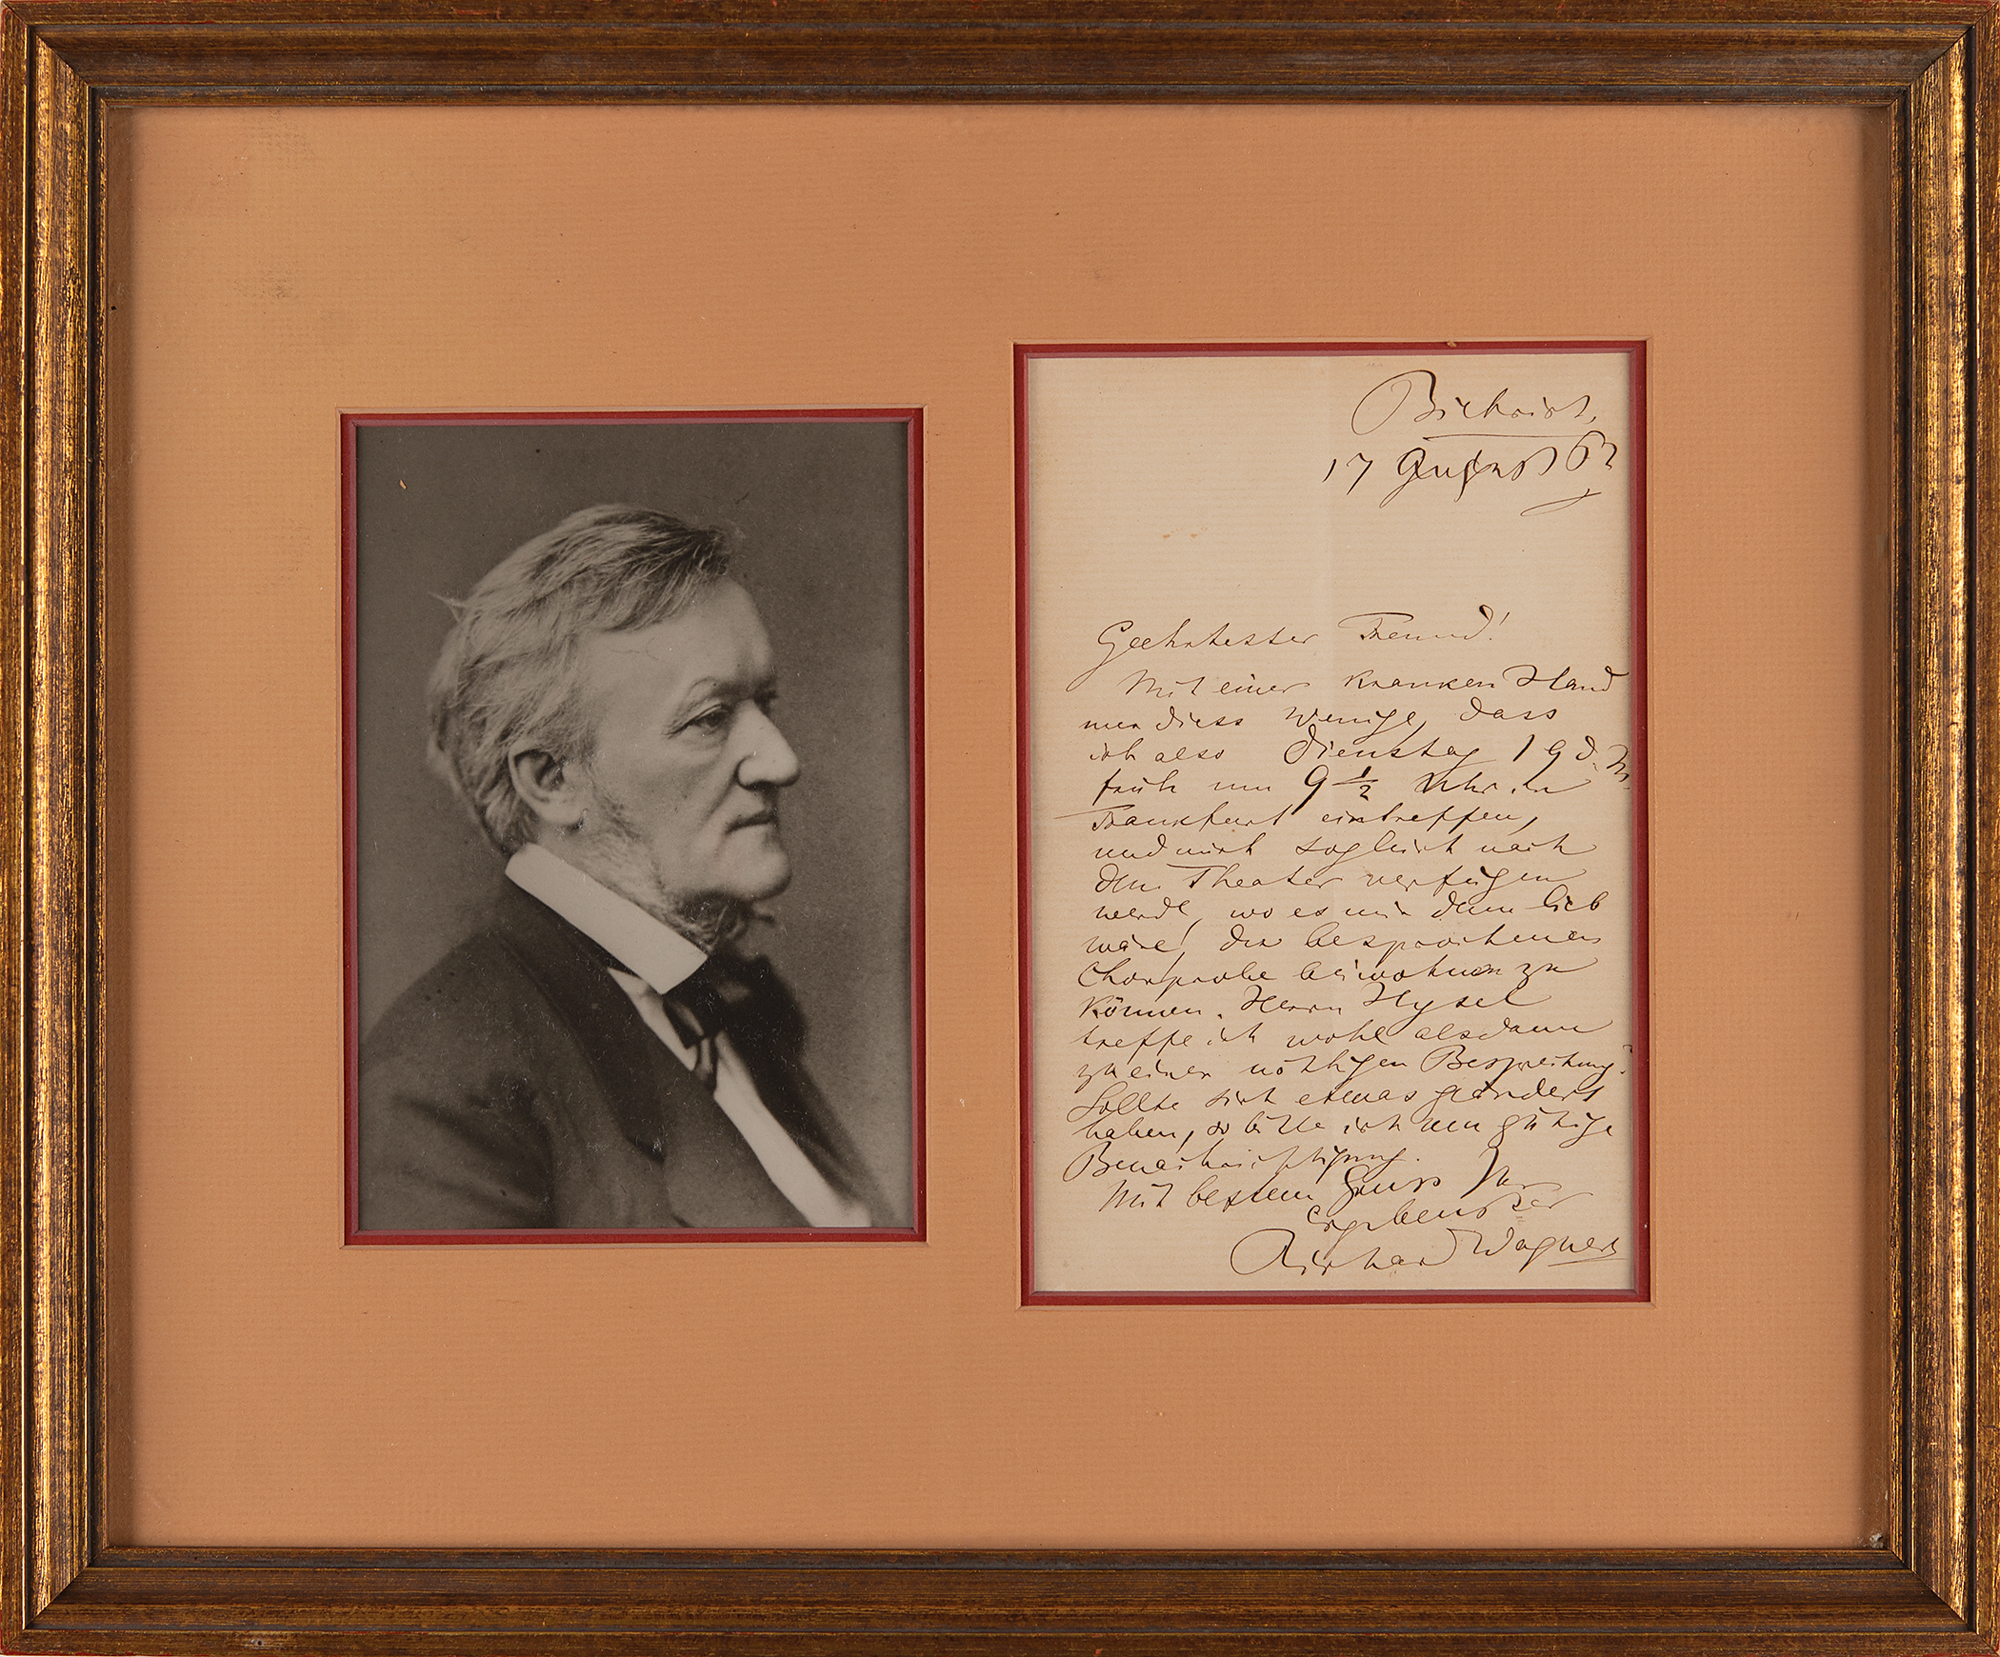 Biebrich,
17 August 62
Geehrtester Freund!
Mit einer kranken Hand
nur diess Wenige, dass
ich also Dienstag 19 d. M.
früh um 9 1/2 Uhr in
Frankfurt eintreffen,
und mich sogleich nach
dem Theater verfügen
werde, wo es mir dann lieb
wäre, der besprochenen
Chorprobe beiwohnen zu
können. Herrn Hysel
treffe ich wohl alsdann
zu einer nöthigen Besprechung?
Sollte sich etwas geändert
haben, so bitte ich um gütige
Benachrichtigung.
Mit bestem Gruss Ihr
ergebenster
Richard Wagner